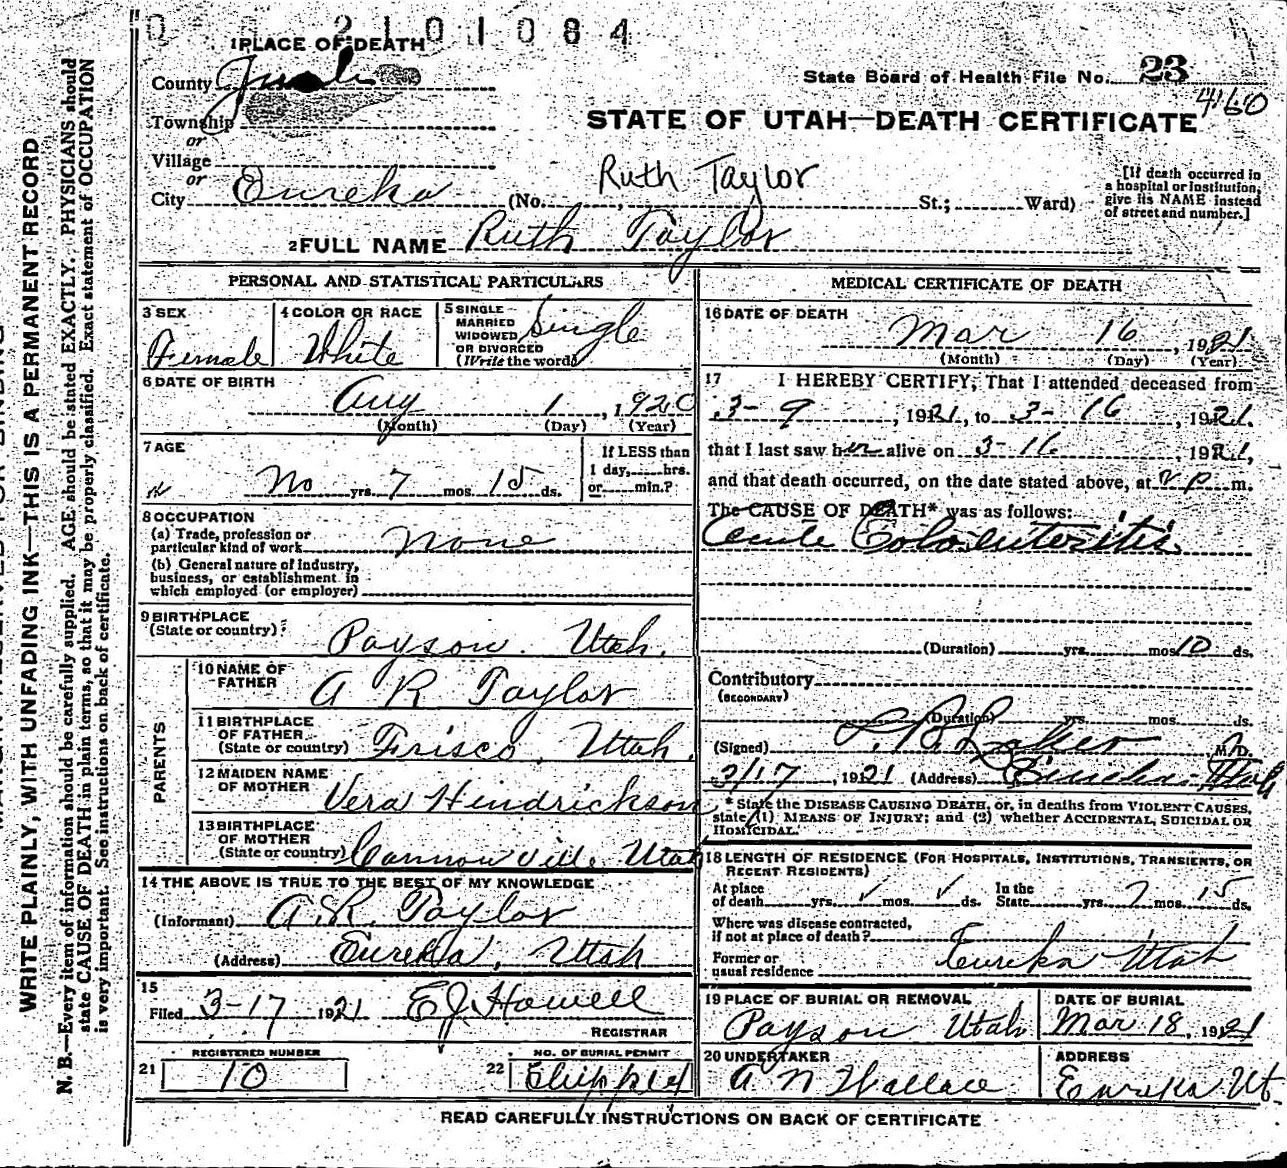 2101084
1 PLACE OF DEATH
County Juab
State Board of Health File No. 23
4160
Township
or
Village
or
STATE OF UTAH—DEATH CERTIFICATE
Ruth Taylor
City Eureka (No. St.; Ward)
[If death occurred in a hospital or institution, give its NAME instead of street and number.]
2 FULL NAME Ruth Taylor
PERSONAL AND STATISTICAL PARTICULARS
3 SEX Female
4 COLOR OR RACE White
5 SINGLE MARRIED WIDOWED OR DIVORCED (Write the word) Single
6 DATE OF BIRTH
Aug 1, 1920
(Month) (Day) (Year)
7 AGE
No yrs. 7 mos. 15 ds.
If LESS than 1 day, hrs. or min.?
8 OCCUPATION
(a) Trade, profession or particular kind of work None
(b) General nature of industry, business, or establishment in which employed (or employer)
9 BIRTHPLACE
(State or country) Payson. Utah.
PARENTS
10 NAME OF FATHER A R Taylor
11 BIRTHPLACE OF FATHER (State or country) Frisco, Utah.
12 MAIDEN NAME OF MOTHER Vera Hindrickson
13 BIRTHPLACE OF MOTHER (State or country) Cannonville Utah
14 THE ABOVE IS TRUE TO THE BEST OF MY KNOWLEDGE
(Informant) A. R. Taylor
(Address) Eureka, Utah
15
Filed 3-17 1921 E J Howell
REGISTRAR
21 REGISTERED NUMBER 10
22 NO. OF BURIAL PERMIT
MEDICAL CERTIFICATE OF DEATH
16 DATE OF DEATH
Mar 16, 1921
(Month) (Day) (Year)
17 I HEREBY CERTIFY, That I attended deceased from
3-9, 1921, to 3-16, 1921.
that I last saw her alive on 3-16, 1921,
and that death occurred, on the date stated above, at m.
The CAUSE OF DEATH* was as follows:
Acute Colo enteritis
(Duration) yrs. mos. 10 ds.
Contributory
(SECONDARY)
(Duration) yrs. mos. ds.
(Signed) M. D.
3/17, 1921 (Address) Eureka Utah
* State the DISEASE CAUSING DEATH, or, in deaths from VIOLENT CAUSES,
state (1) MEANS OF INJURY; and (2) whether ACCIDENTAL, SUICIDAL OR
HOMICIDAL.
18 LENGTH OF RESIDENCE (FOR HOSPITALS, INSTITUTIONS, TRANSIENTS, OR
RECENT RESIDENTS)
At place of death yrs. ✓ mos. ✓ ds. In the State yrs. 7 mos. 15 ds.
Where was disease contracted, if not at place of death?
Former or usual residence Eureka Utah
19 PLACE OF BURIAL OR REMOVAL
Payson Utah
DATE OF BURIAL
Mar 18, 1921
20 UNDERTAKER
A N Wallace
ADDRESS
Eureka Ut.
READ CAREFULLY INSTRUCTIONS ON BACK OF CERTIFICATE
WRITE PLAINLY, WITH UNFADING INK—THIS IS A PERMANENT RECORD
N. B.—Every item of information should be carefully supplied. AGE should be stated EXACTLY. PHYSICIANS should
state CAUSE OF DEATH in plain terms, so that it may be properly classified. Exact statement of OCCUPATION
is very important. See instructions on back of certificate.